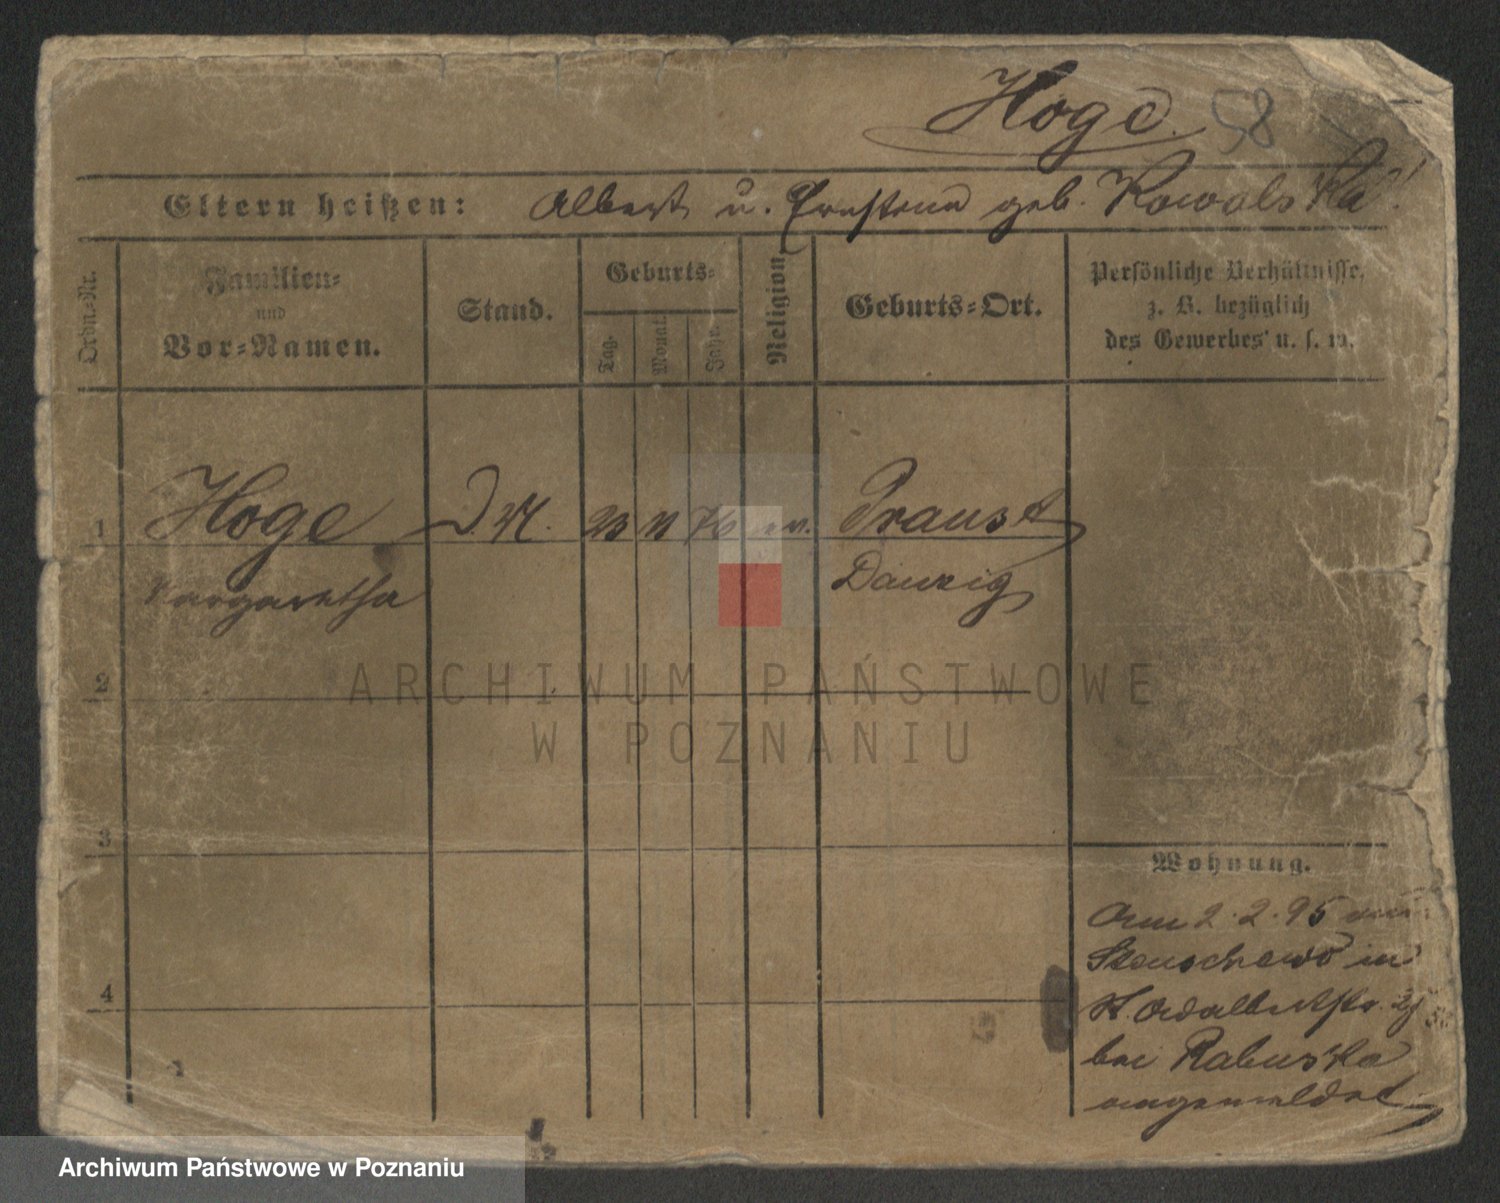 Hoge. 58
Eltern heißen: Albert u. Ernstine geb. Kowalska!
Ordn.-Nr.
Familien-
und
Vor-Namen.
Stand.
Geburts-
Tag.
Monat.
Jahr.
Religion.
Geburts-Ort.
Persönliche Verhältnisse,
z. B. bezüglich
des Gewerbes u. s. w.
1 Hoge D. M. 23 11 76 ev. Praust
Margaretha Danzig
2
ARCHIWUM PAŃSTWOWE
W POZNANIU
3
Wohnung.
Am 2.2.95 von
Stenschewo in
St. Adalbertstr.
bei Rabuska
angemeldet
4
Archiwum Państwowe w Poznaniu